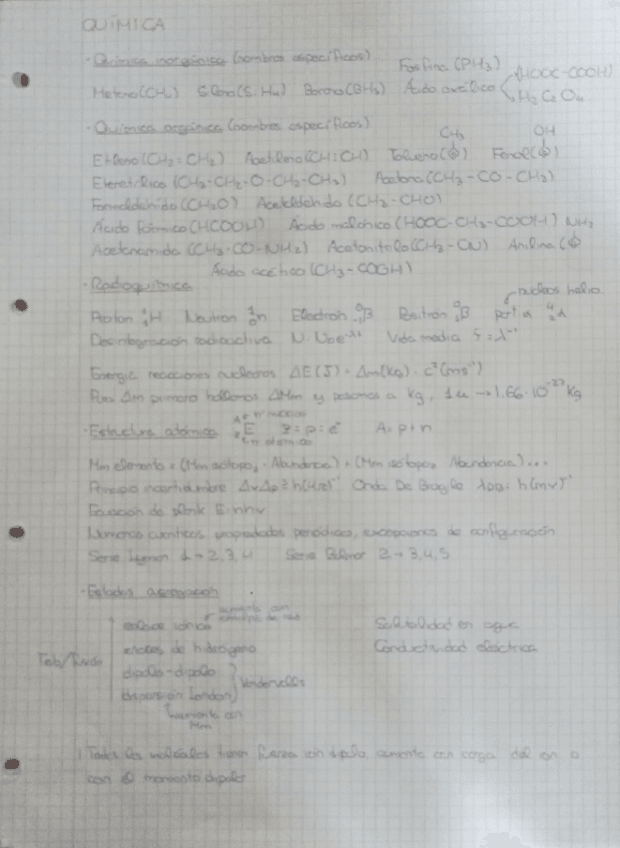 QUÍMICA
· Química inorgánica (nombres específicos) Fosfina (PH3) HOOC-COOH)
Metano (CH4) Silano (SiH4) Borano (BH3) Ácido oxálico H2C2O4
· Química orgánica (nombres específicos) CH3 OH
Etileno (CH2=CH2) Acetileno (CH≡CH) Tolueno Fenol
Eteretílico (CH3-CH2-O-CH2-CH3) Acetona (CH3-CO-CH3)
Formaldehído (CH2O) Acetaldehído (CH3-CHO)
Ácido fórmico (HCOOH) Ácido malónico (HOOC-CH2-COOH) NH2
Acetanamida (CH3-CO-NH2) Acetonitrilo (CH3-CN) Anilina
Ácido acético (CH3-COOH)
· Radioquímica núcleos helio
Protón 1 1 H Neutrón 1 0 n Electrón 0 -1 β Positrón 0 1 β part α 4 2 α
Desintegración radioactiva N=N0e-λt Vida media = λ-1
Energía reacciones nucleares ΔE(J) = Δm(kg) · c2(ms-1)
Para Δm primero hallamos ΔMm y pasamos a kg, 1u → 1,66·10-27 kg
· Estructura atómica A E Z = p = e- A = p+n
nº atómico
Mm elemento = (Mm isótopo1 · Abundancia) + (Mm isótopo2 Abundancia)...
Principio incertidumbre Onda De Broglie = h(mv)-1
Ecuación de plank E=nhν
Números cuánticos, propiedades periódicas, excepciones de configuración
Serie Lyman 1→2,3,4 Serie Balmer 2→3,4,5
· Estados agregación
enlace iónico aumenta con Solubilidad en agua
enlaces de hidrógeno Conductividad eléctrica
Teb/Tfusió dipolo-dipolo
dispersión London Vanderwalls
aumenta con
Mm
Todas las moléculas tienen fuerza ion dipolo, aumenta con carga del ion o
con el momento dipolar